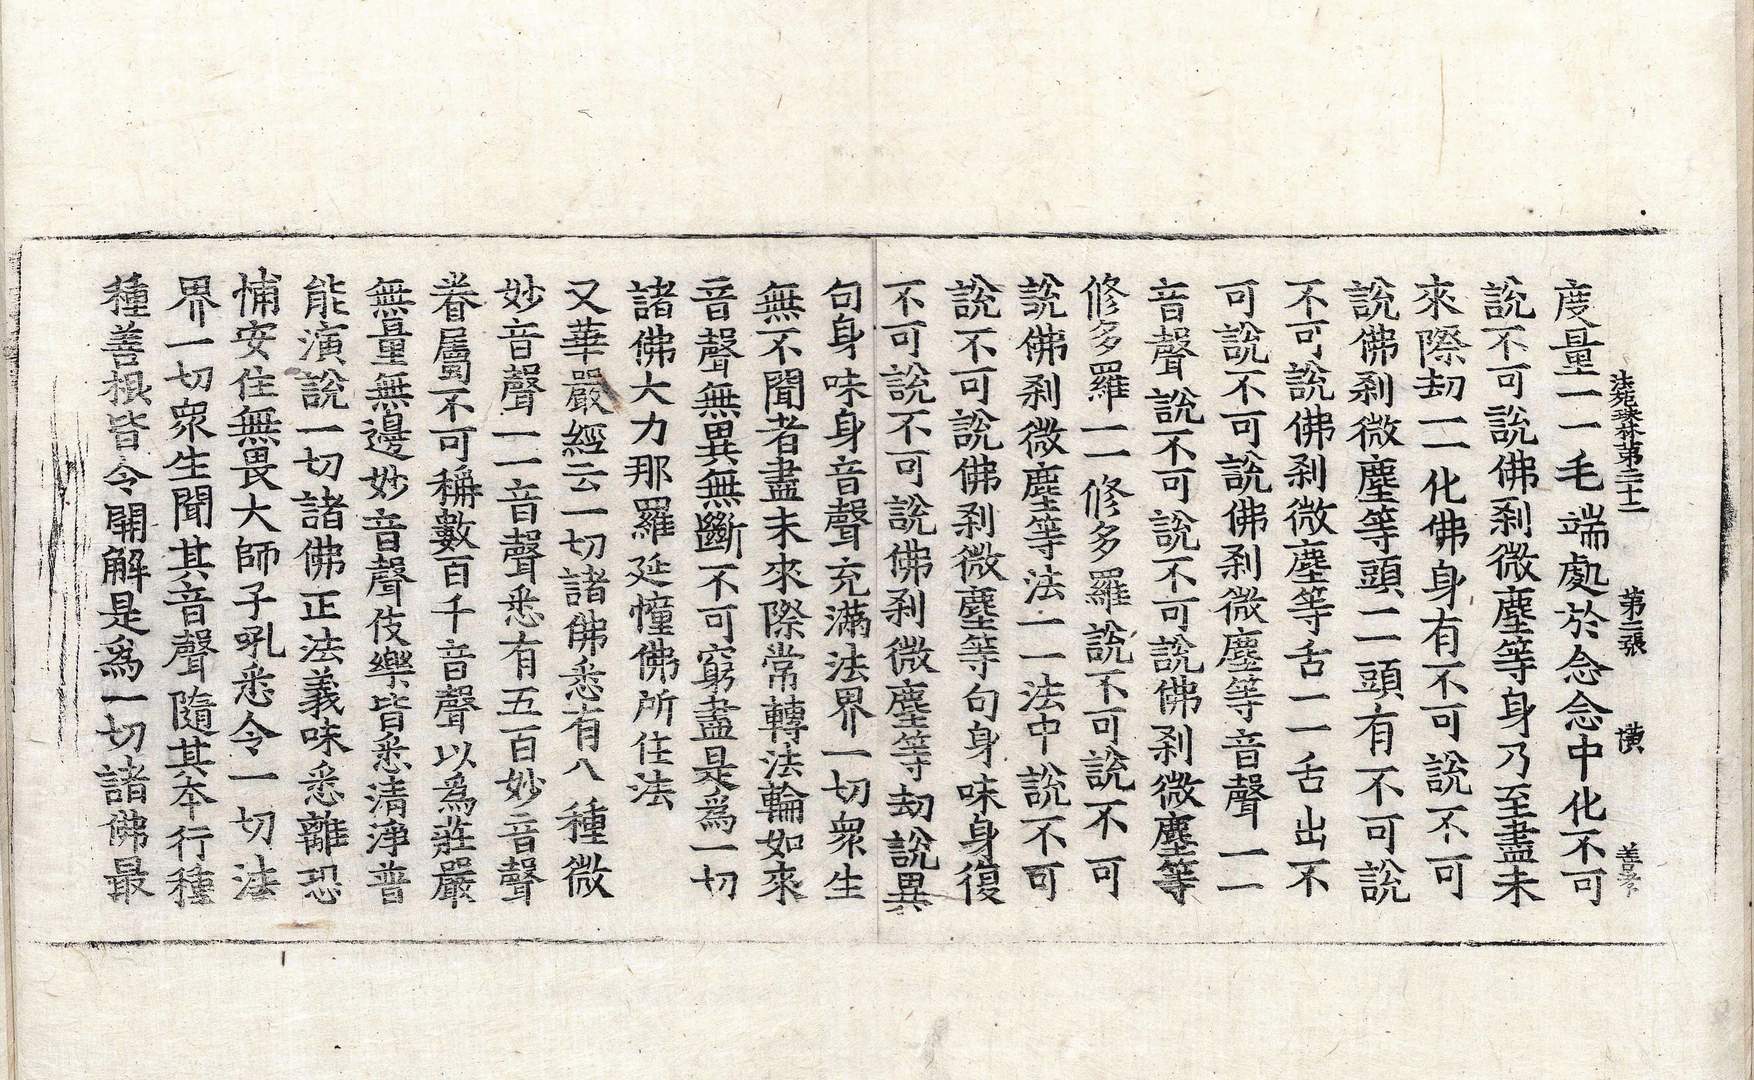 法苑珠林第二十二 第二張 橫
度量一一毛端處於念念中化不可
說不可說佛刹微塵等身乃至盡未
來際劫一一化佛身有不可說不可
說佛刹微塵等頭一一頭有不可說
不可說佛刹微塵等舌一一舌出不
可說不可說佛刹微塵等音聲一一
音聲說不可說不可說佛刹微塵等
修多羅一一修多羅說不可說不可
說佛刹微塵等法一一法中說不可
說不可說佛刹微塵等句身味身復
不可說不可說佛刹微塵等劫說異
句身味身音聲充滿法界一切衆生
無不聞者盡未來際常轉法輪如來
音聲無異無斷不可窮盡是爲一切
諸佛大力那羅延幢佛所住法
又華嚴經云一切諸佛悉有八種微
妙音聲一一音聲悉有五百妙音聲
眷屬不可稱數百千音聲以爲莊嚴
無量無邊妙音聲伎樂皆悉清淨普
能演說一切諸佛正法義味悉離恐
怖安住無畏大師子吼悉令一切法
界一切衆生聞其音聲隨其本行種
種善根皆令開解是爲一切諸佛最